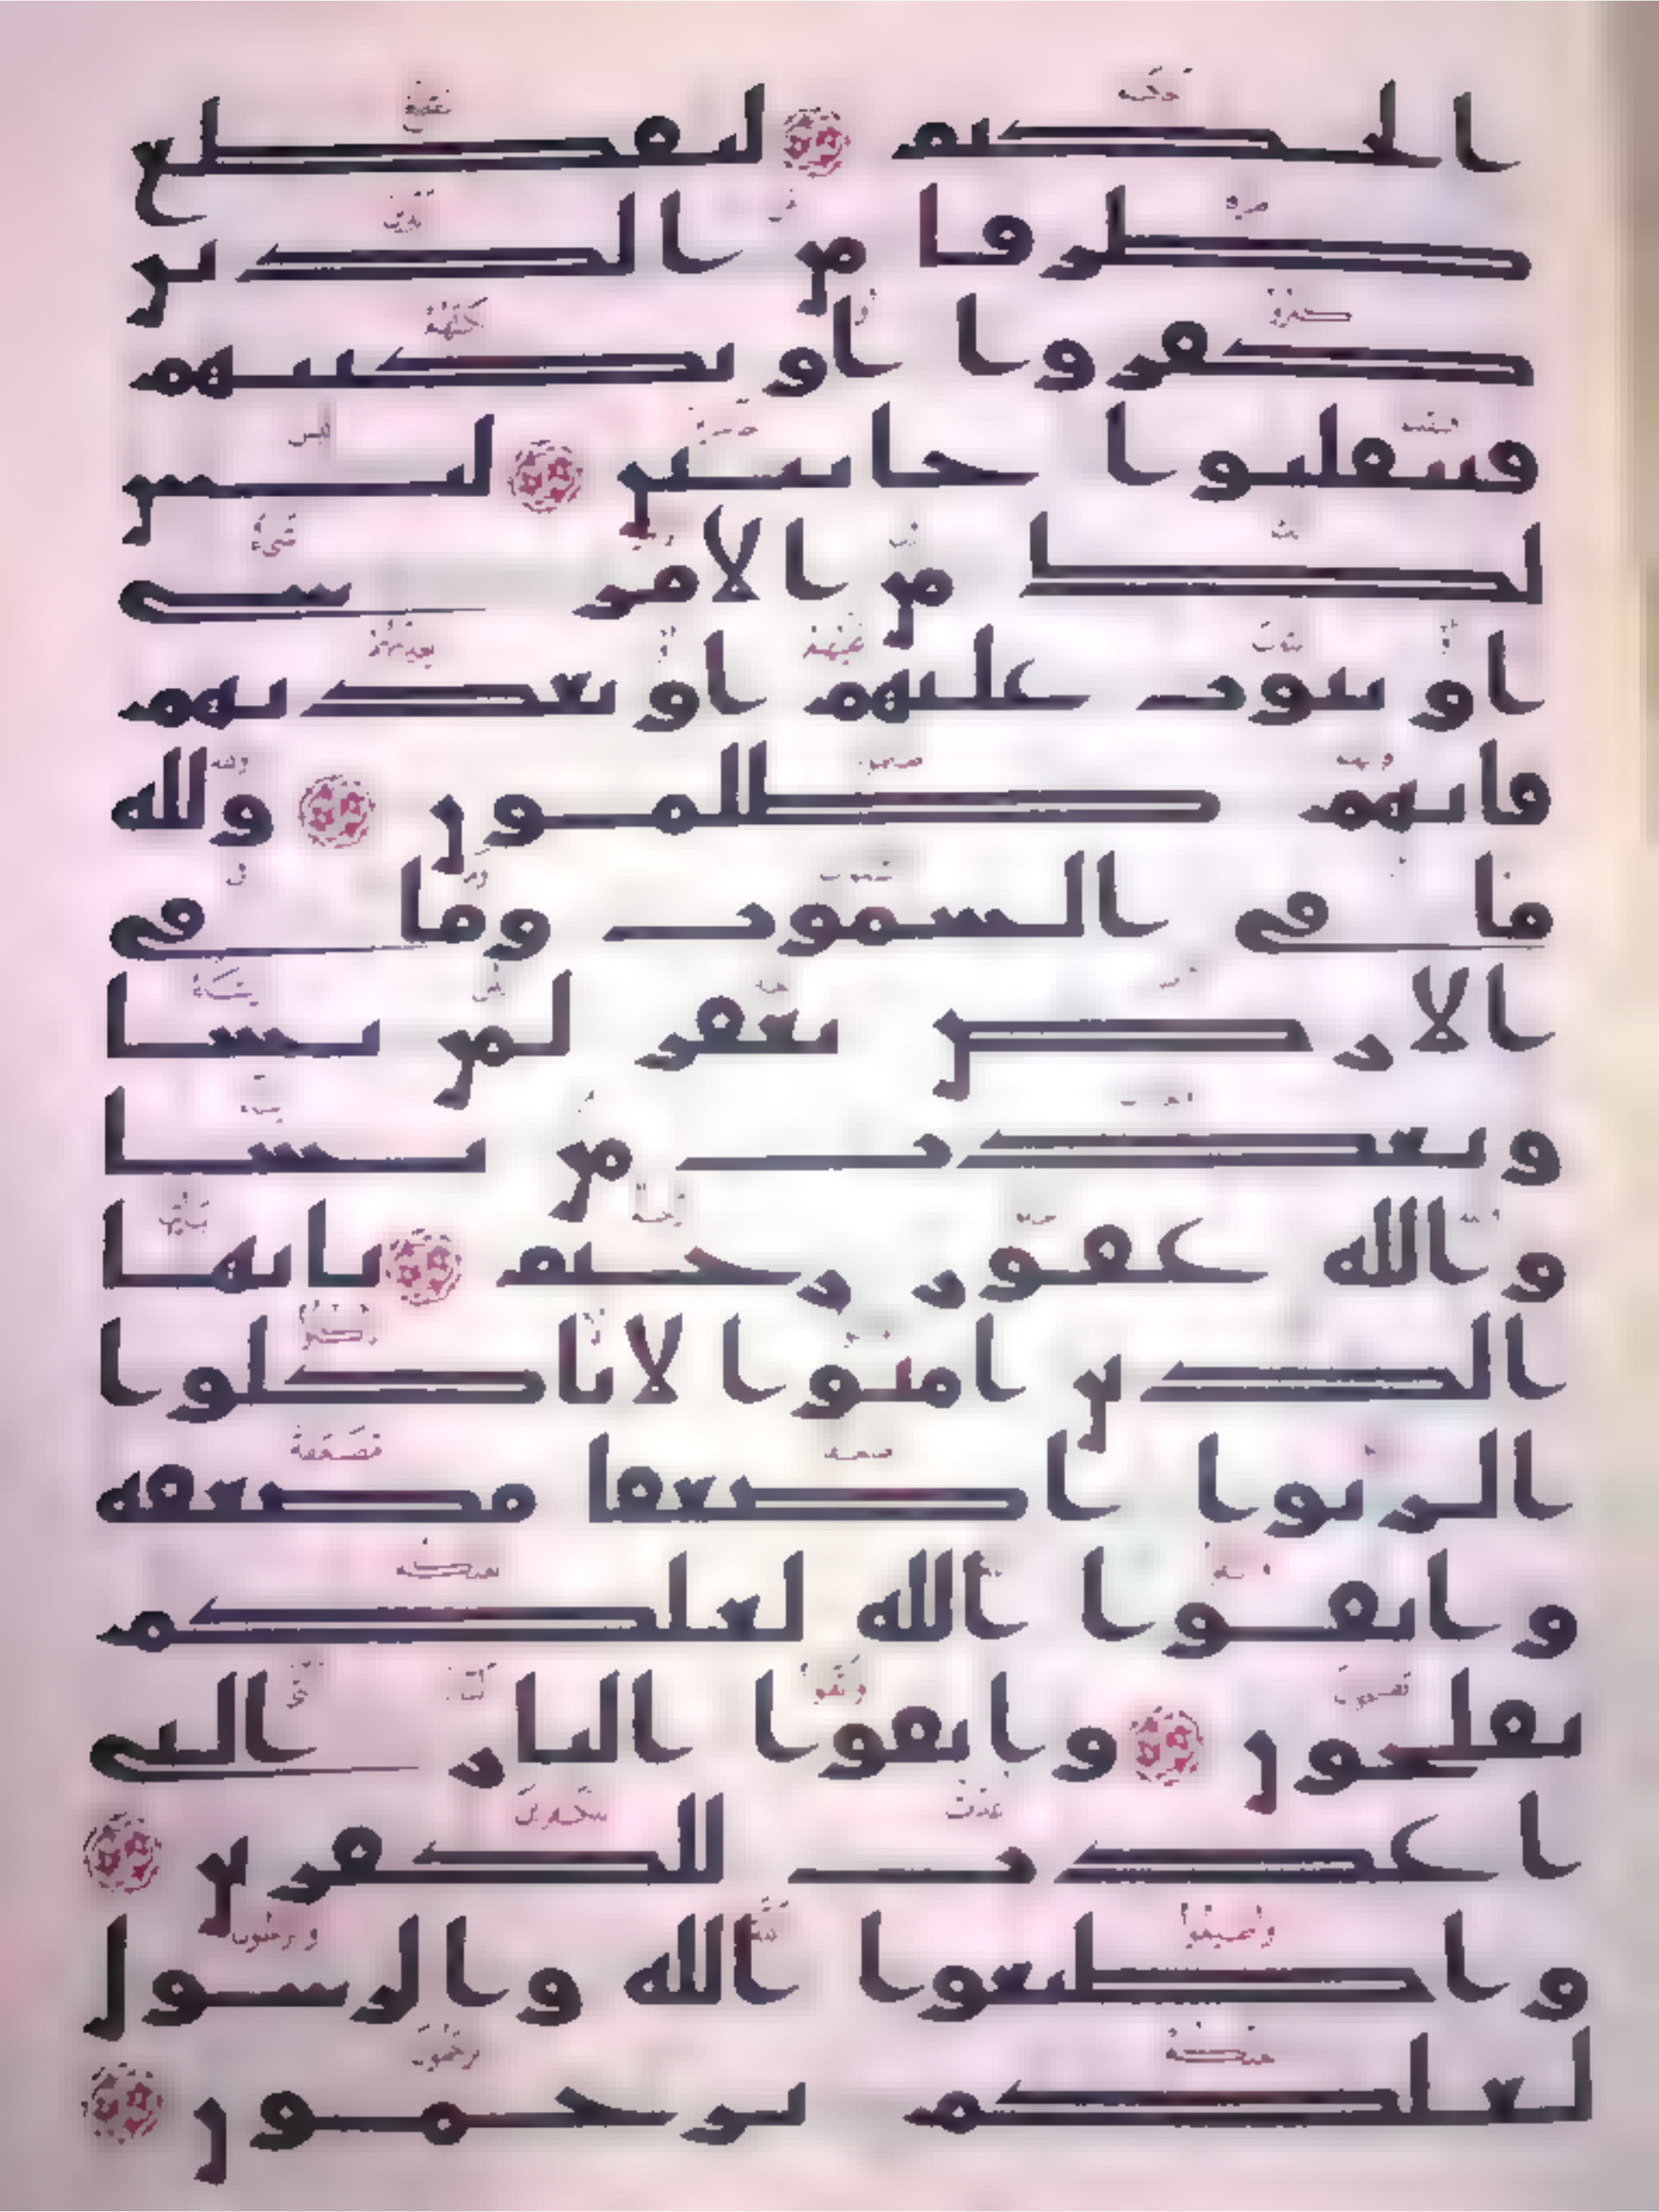 الحكيم ليقطع
طرفا من الذين
كفروا او يكبتهم
فينقلبوا خايبين ليس
لك من الامر شي
او يتوب عليهم او يعذبهم
فانهم ظلمون ولله
ما في السموت وما في
الارض يغفر لمن يشا
ويعذب من يشا
والله غفور رحيم يايها
الذين امنوا لا تاكلوا
الربوا اضعفا مضعفه
واتقوا الله لعلكم
تفلحون واتقوا النار التي
اعدت للكفرين
واطيعوا الله والرسول
لعلكم ترحمون